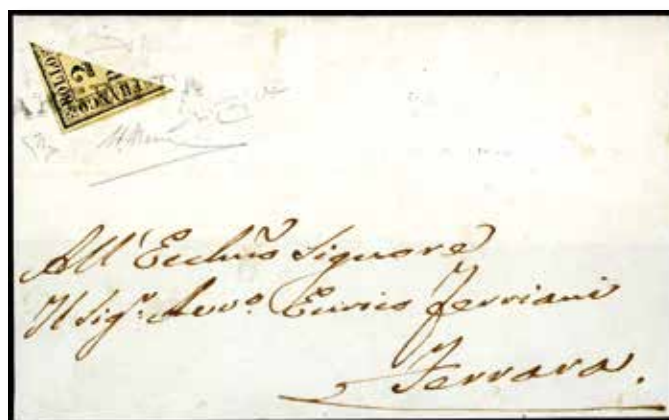 FRANCO BOLLO
2
All' Ecclmo Signore
Il Sigr. Avvo. Enrico Ferriani
Ferrara.